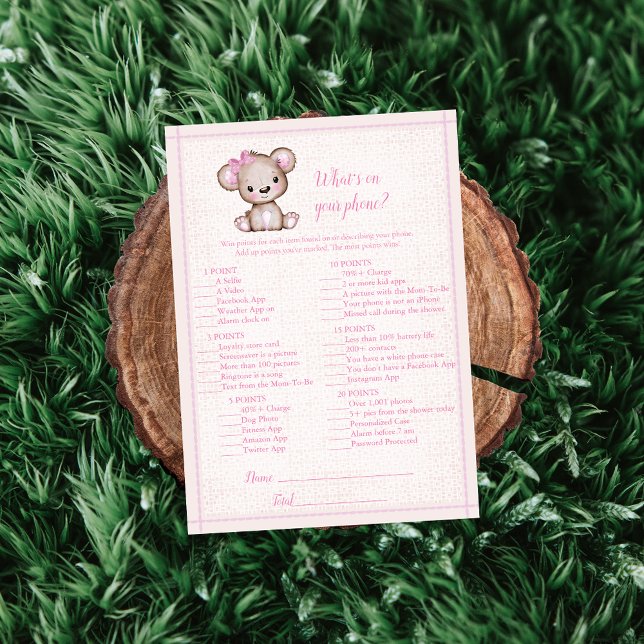 What's on
your phone?
Win points for each item found on or describing your phone.
Add up points you've marked. The most points wins!
1 POINT
A Selfie
A Video
Facebook App
Weather App on
Alarm clock on
3 POINTS
Loyalty store card
Screensaver is a picture
More than 100 pictures
Ringtone is a song
Text from the Mom-To-Be
5 POINTS
40%+ Charge
Dog Photo
Fitness App
Amazon App
Twitter App
10 POINTS
70%+ Charge
2 or more kid apps
A picture with the Mom-To-Be
Your phone is not an iPhone
Missed call during the shower
15 POINTS
Less than 10% battery life
200+ contacts
You have a white phone case
You don't have a Facebook App
Instagram App
20 POINTS
Over 1,001 photos
5+ pics from the shower today
Personalized Case
Alarm before 7 am
Password Protected
Name
Total